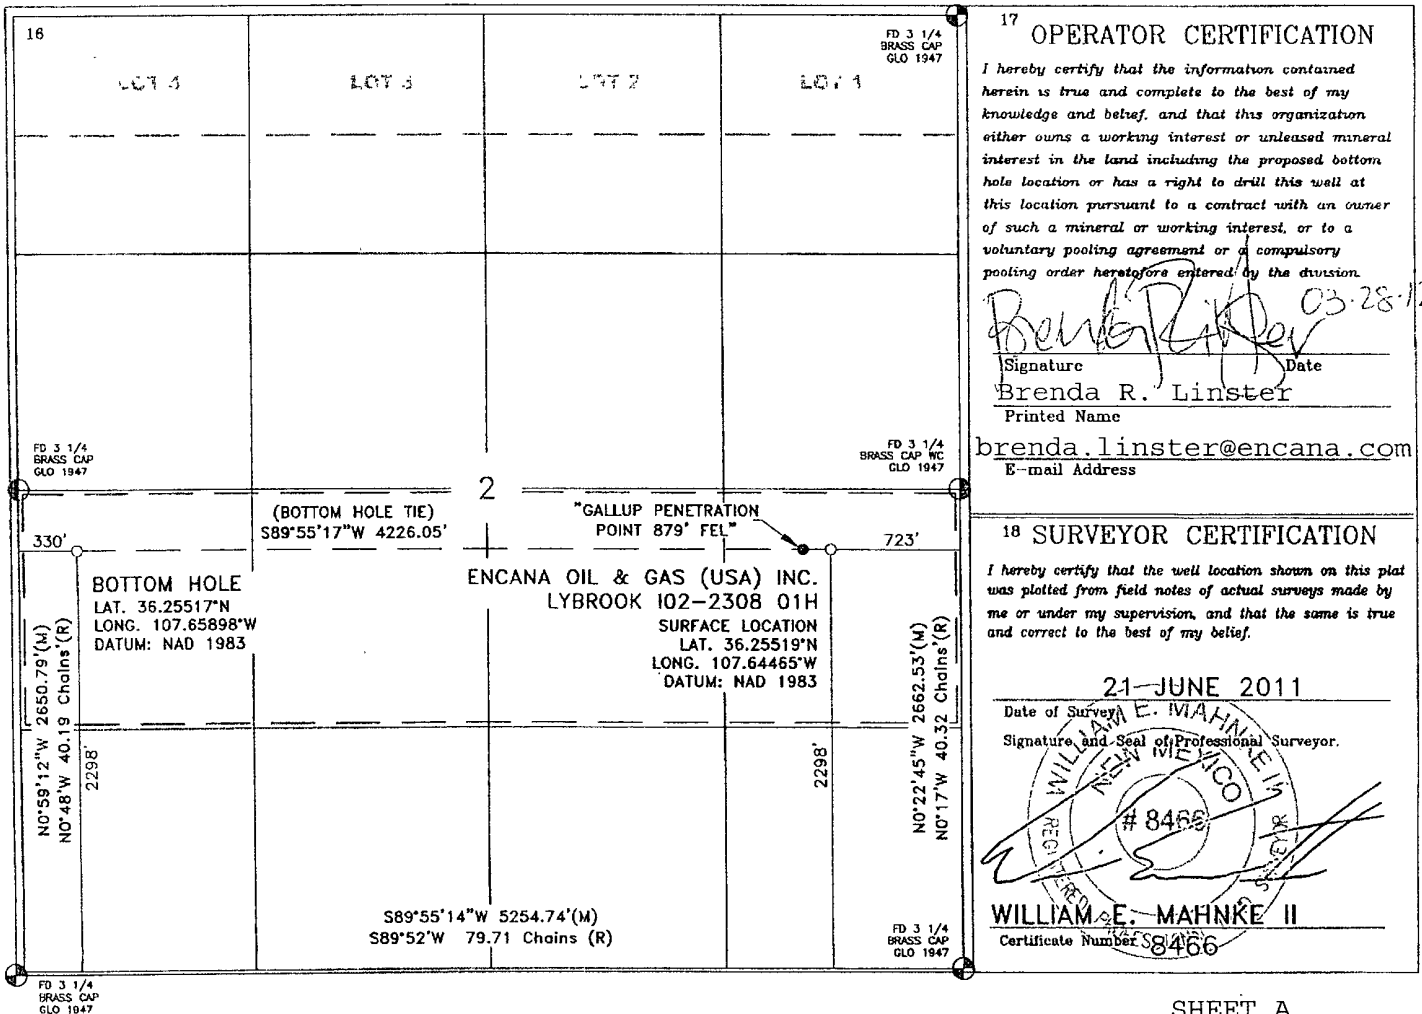 16
FD 3 1/4
BRASS CAP
GLO 1947
LOT 4
LOT 3
LOT 2
LOT 1
FD 3 1/4
BRASS CAP
GLO 1947
FD 3 1/4
BRASS CAP WC
GLO 1947
2
(BOTTOM HOLE TIE)
S89°55'17"W 4226.05'
"GALLUP PENETRATION
POINT 879' FEL"
330'
723'
BOTTOM HOLE
LAT. 36.25517°N
LONG. 107.65898°W
DATUM: NAD 1983
ENCANA OIL & GAS (USA) INC.
LYBROOK I02-2308 01H
SURFACE LOCATION
LAT. 36.25519°N
LONG. 107.64465°W
DATUM: NAD 1983
N0°59'12"W 2650.79'(M)
N0°48'W 40.19 Chains'(R)
2298'
2298'
N0°22'45"W 2662.53'(M)
N0°17'W 40.32 Chains'(R)
S89°55'14"W 5254.74'(M)
S89°52'W 79.71 Chains (R)
FD 3 1/4
BRASS CAP
GLO 1947
FD 3 1/4
BRASS CAP
GLO 1947
17 OPERATOR CERTIFICATION
I hereby certify that the information contained
herein is true and complete to the best of my
knowledge and belief, and that this organization
either owns a working interest or unleased mineral
interest in the land including the proposed bottom
hole location or has a right to drill this well at
this location pursuant to a contract with an owner
of such a mineral or working interest, or to a
voluntary pooling agreement or a compulsory
pooling order heretofore entered by the division.
03-28-12
Signature Date
Brenda R. Linster
Printed Name
brenda.linster@encana.com
E-mail Address
18 SURVEYOR CERTIFICATION
I hereby certify that the well location shown on this plat
was plotted from field notes of actual surveys made by
me or under my supervision, and that the same is true
and correct to the best of my belief.
21-JUNE 2011
Date of Survey
Signature and Seal of Professional Surveyor.
WILLIAM E. MAHNKE II
NEW MEXICO
#8466
REGISTERED PROFESSIONAL SURVEYOR
WILLIAM E. MAHNKE II
Certificate Number 8466
SHEET A